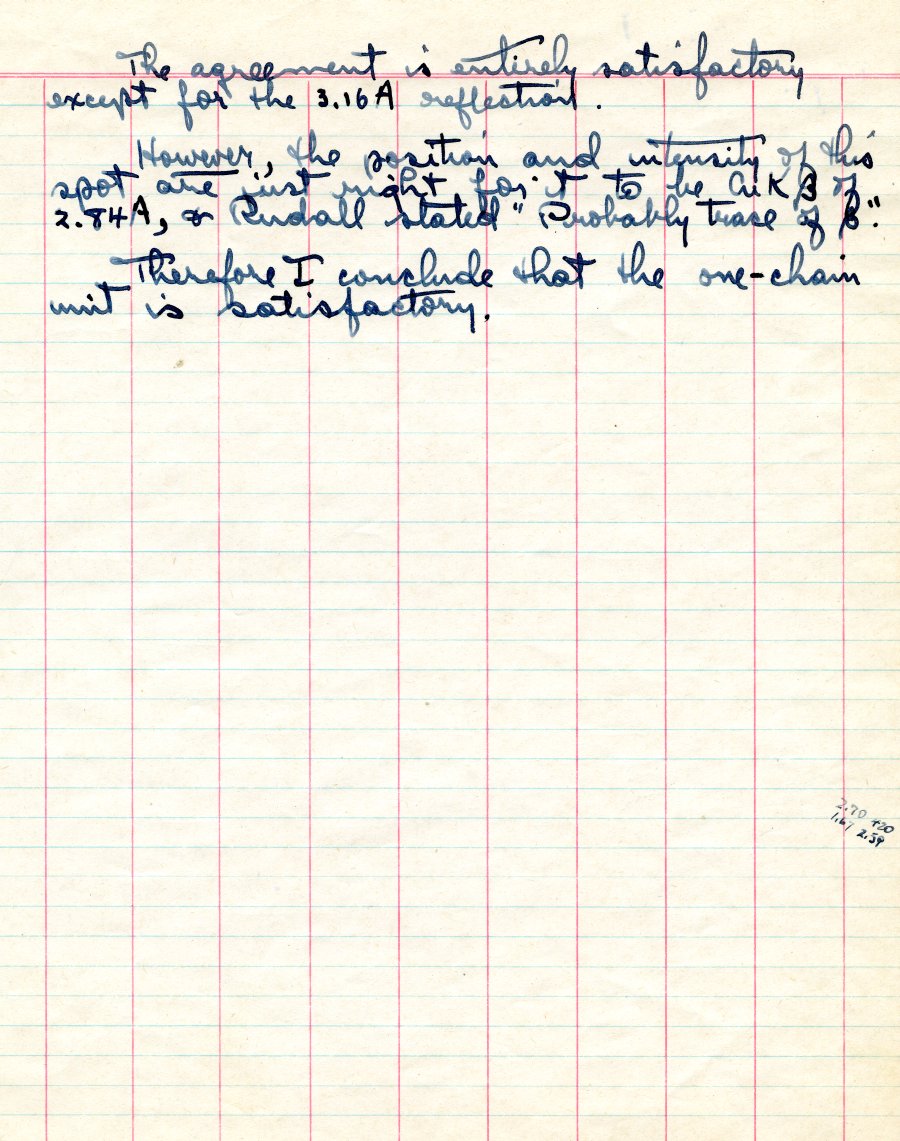 The agreement is entirely satisfactory
except for the 3.16A reflection.
However, the position and intensity of this
spot are just right for it to be CuKβ of
2.84A, & Rudall stated "Probably trace of β".
Therefore I conclude that the one-chain
unit is satisfactory.
2.70 +20
1.67 2.59